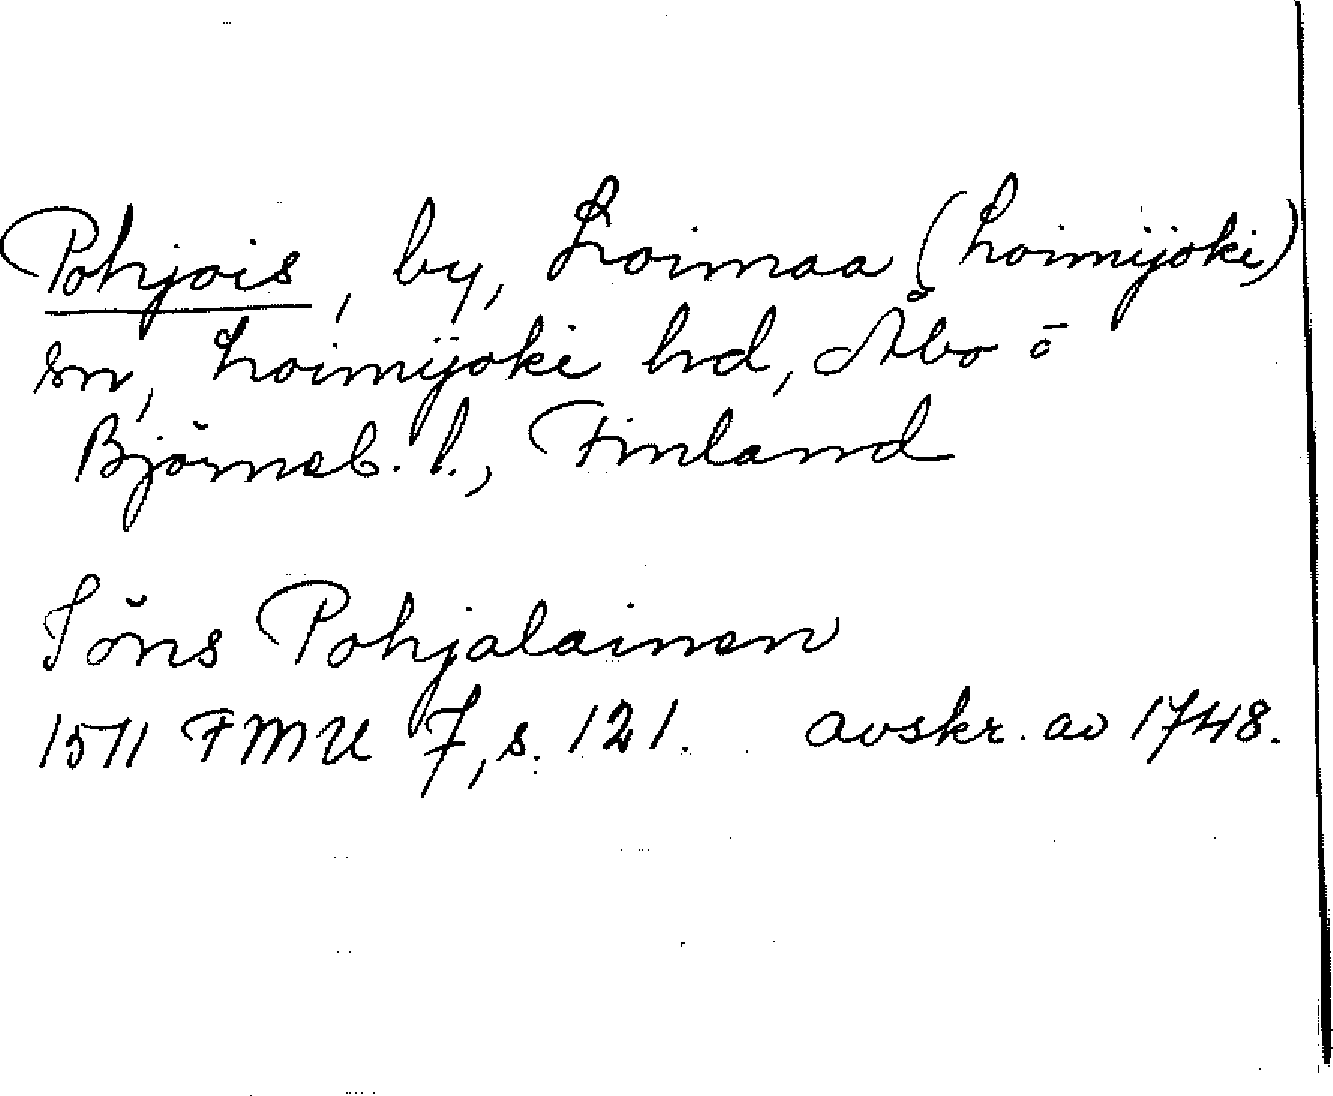 Pohjois, by, Loimaa (Loimijoki)
sn, Loimijoki hd, Åbo o
Björneb. l., Finland
Jöns Pohjalainen
1511 FMU 7, s. 121. avskr. av 1748.